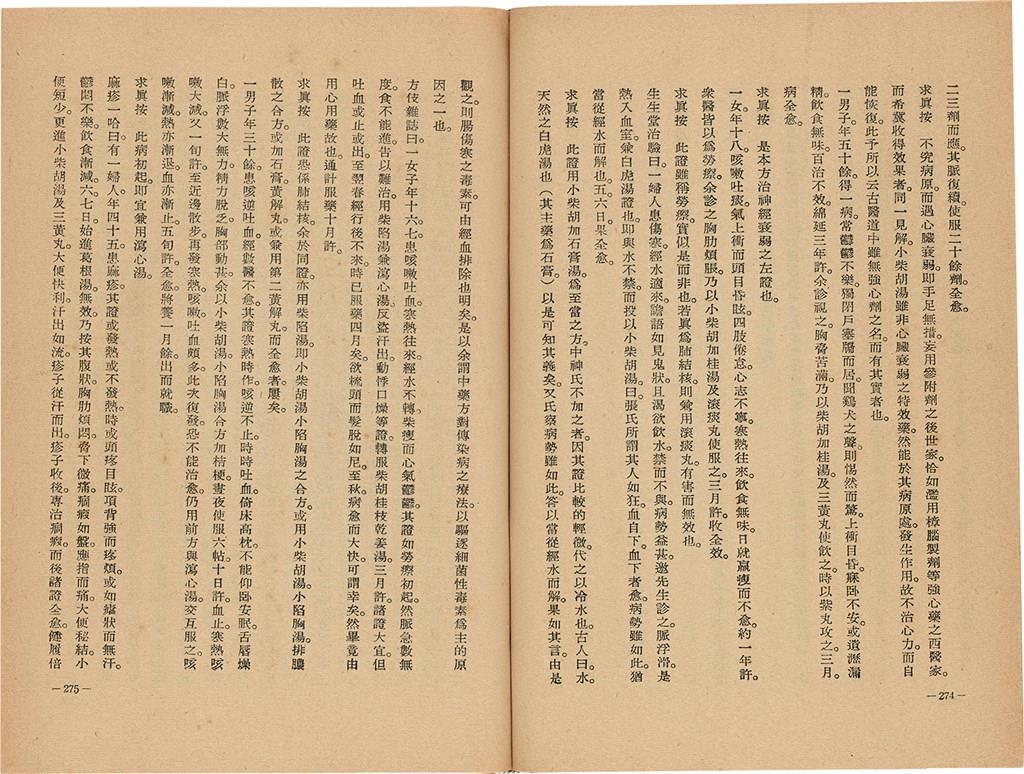 二三劑而應。其脈復續。使服二十餘劑全愈。
求眞按　不究病原而遇心臟衰弱即手足無措。妄用參附劑之後世家。恰如濫用樟腦製劑等強心藥之西醫家。
而希冀收得效果者。同一見解。小柴胡湯雖非心臟衰弱之特效藥。然能於其病原處發生作用。故不治心力。而自
能恢復。此予所以云古醫道中雖無強心劑之名。而有其實者也。
一男子年五十餘得一病。常鬱鬱不樂。獨閉戶塞牖而居。聞鷄犬之聲。則惕然而驚。上衝目昏。寐卧不安。或遺瀝漏
精。飲食無味。百治不效。綿延三年許。余診視之。胸脅苦滿。乃以柴胡加桂湯。及三黃丸使飲之。時以紫丸攻之。三月。
病全愈。
求眞按　是本方治神經衰弱之左證也。
一女年十八。咳嗽吐痰。氣上衝而頭目昏眩。四肢倦怠。心志不寧。寒熱往來。飲食無味。日就羸瘦而不愈。約一年許。
衆醫皆以爲勞瘵。余診之。胸肋煩脹。乃以小柴胡加桂湯及滾痰丸使服之。三月許收全效。
求眞按　此證雖稱勞瘵。實似是而非也。若眞爲肺結核。則兼用滾痰丸。有害而無效也。
生生堂治驗曰。一婦人患傷寒。經水適來。譫語如見鬼狀。且渴欲飲水。禁而不與。病勢益甚。邀先生診之。脈浮滑。是
熱入血室。兼白虎湯證也。即與水不禁。而投以小柴胡湯。曰。張氏所謂其人如狂。血自下。血下者愈。病勢雖如此。猶
當從經水而解也。五六日果全愈。
求眞按　此證用小柴胡加石膏湯。爲至當之方。中神氏不加之者。因其證比較的輕微。代之以冷水也。古人曰。水。
天然之白虎湯也（其主藥爲石膏）。以是可知其義矣。又氏察病勢雖如此。答以當從經水而解。果如其言。由是
—274—
觀之。則腸傷寒之毒素。可由經血排除也明矣。是以余謂中藥方對傳染病之療法。以驅逐細菌性毒素爲主的原
因之一也。
方伎雜誌曰。一女子年十六七。患咳嗽吐血。寒熱往來。經水不轉。柴瘦而心氣鬱鬱。其證如勞瘵初起。然脈急數無
度。食不能進。告以難治。用柴陷湯兼瀉心湯。反盜汗出。動悸口燥等證。轉服柴胡桂枝乾姜湯三月許。諸證大宜。但
吐血或止或出。至翌春經行後不來時。已服藥四月矣。欲梳頭而髮脫如尼。至秋病愈而大快。可謂幸矣。然畢竟由
用心用藥故也。通計服藥十月許。
求眞按　此證恐係肺結核。余於同證。亦用柴陷湯。即小柴胡湯小陷胸湯之合方。或用小柴胡湯。小陷胸湯。排膿
散之合方。或加石膏黃解丸。或兼用第二黃解丸。而全愈者屢矣。
一男子年三十餘。患咳逆吐血。經數醫不愈。其證寒熱時作。咳逆不止。時時吐血。倚床高枕。不能仰卧安眠。舌唇燥
白。脈浮數大無力。精力脫乏。胸部動甚。余以小柴胡湯小陷胸湯合方加桔梗。晝夜使服六帖。十日許。血止。寒熱咳
嗽大減。又一旬許。至近邊散步。再發寒熱。咳嗽吐血頗多。此次復發。恐不能治愈。仍用前方與瀉心湯。交互服之。咳
嗽漸減。熱亦漸退。血亦漸止。五旬許。全愈。將養一月餘。出而就職。
求眞按　此病初起。即宜兼用瀉心湯。
麻疹一哈曰。有一婦人。年四十五。患麻疹。其證或發熱或不發熱。時或頭疼目眩。項背強而疼煩。或如瘧狀而無汗。
鬱悶不樂。飲食漸減。六七日。始進葛根湯無效。乃按其腹狀。胸肋煩悶。脅下微痛。痼瘕如盤。應指而痛。大便秘結。小
便短少。更進小柴胡湯及三黃丸。大便快利。汗出如流。疹子從汗而出。疹子收後。專治痼瘕。而後諸證全愈。健履倍
—275—